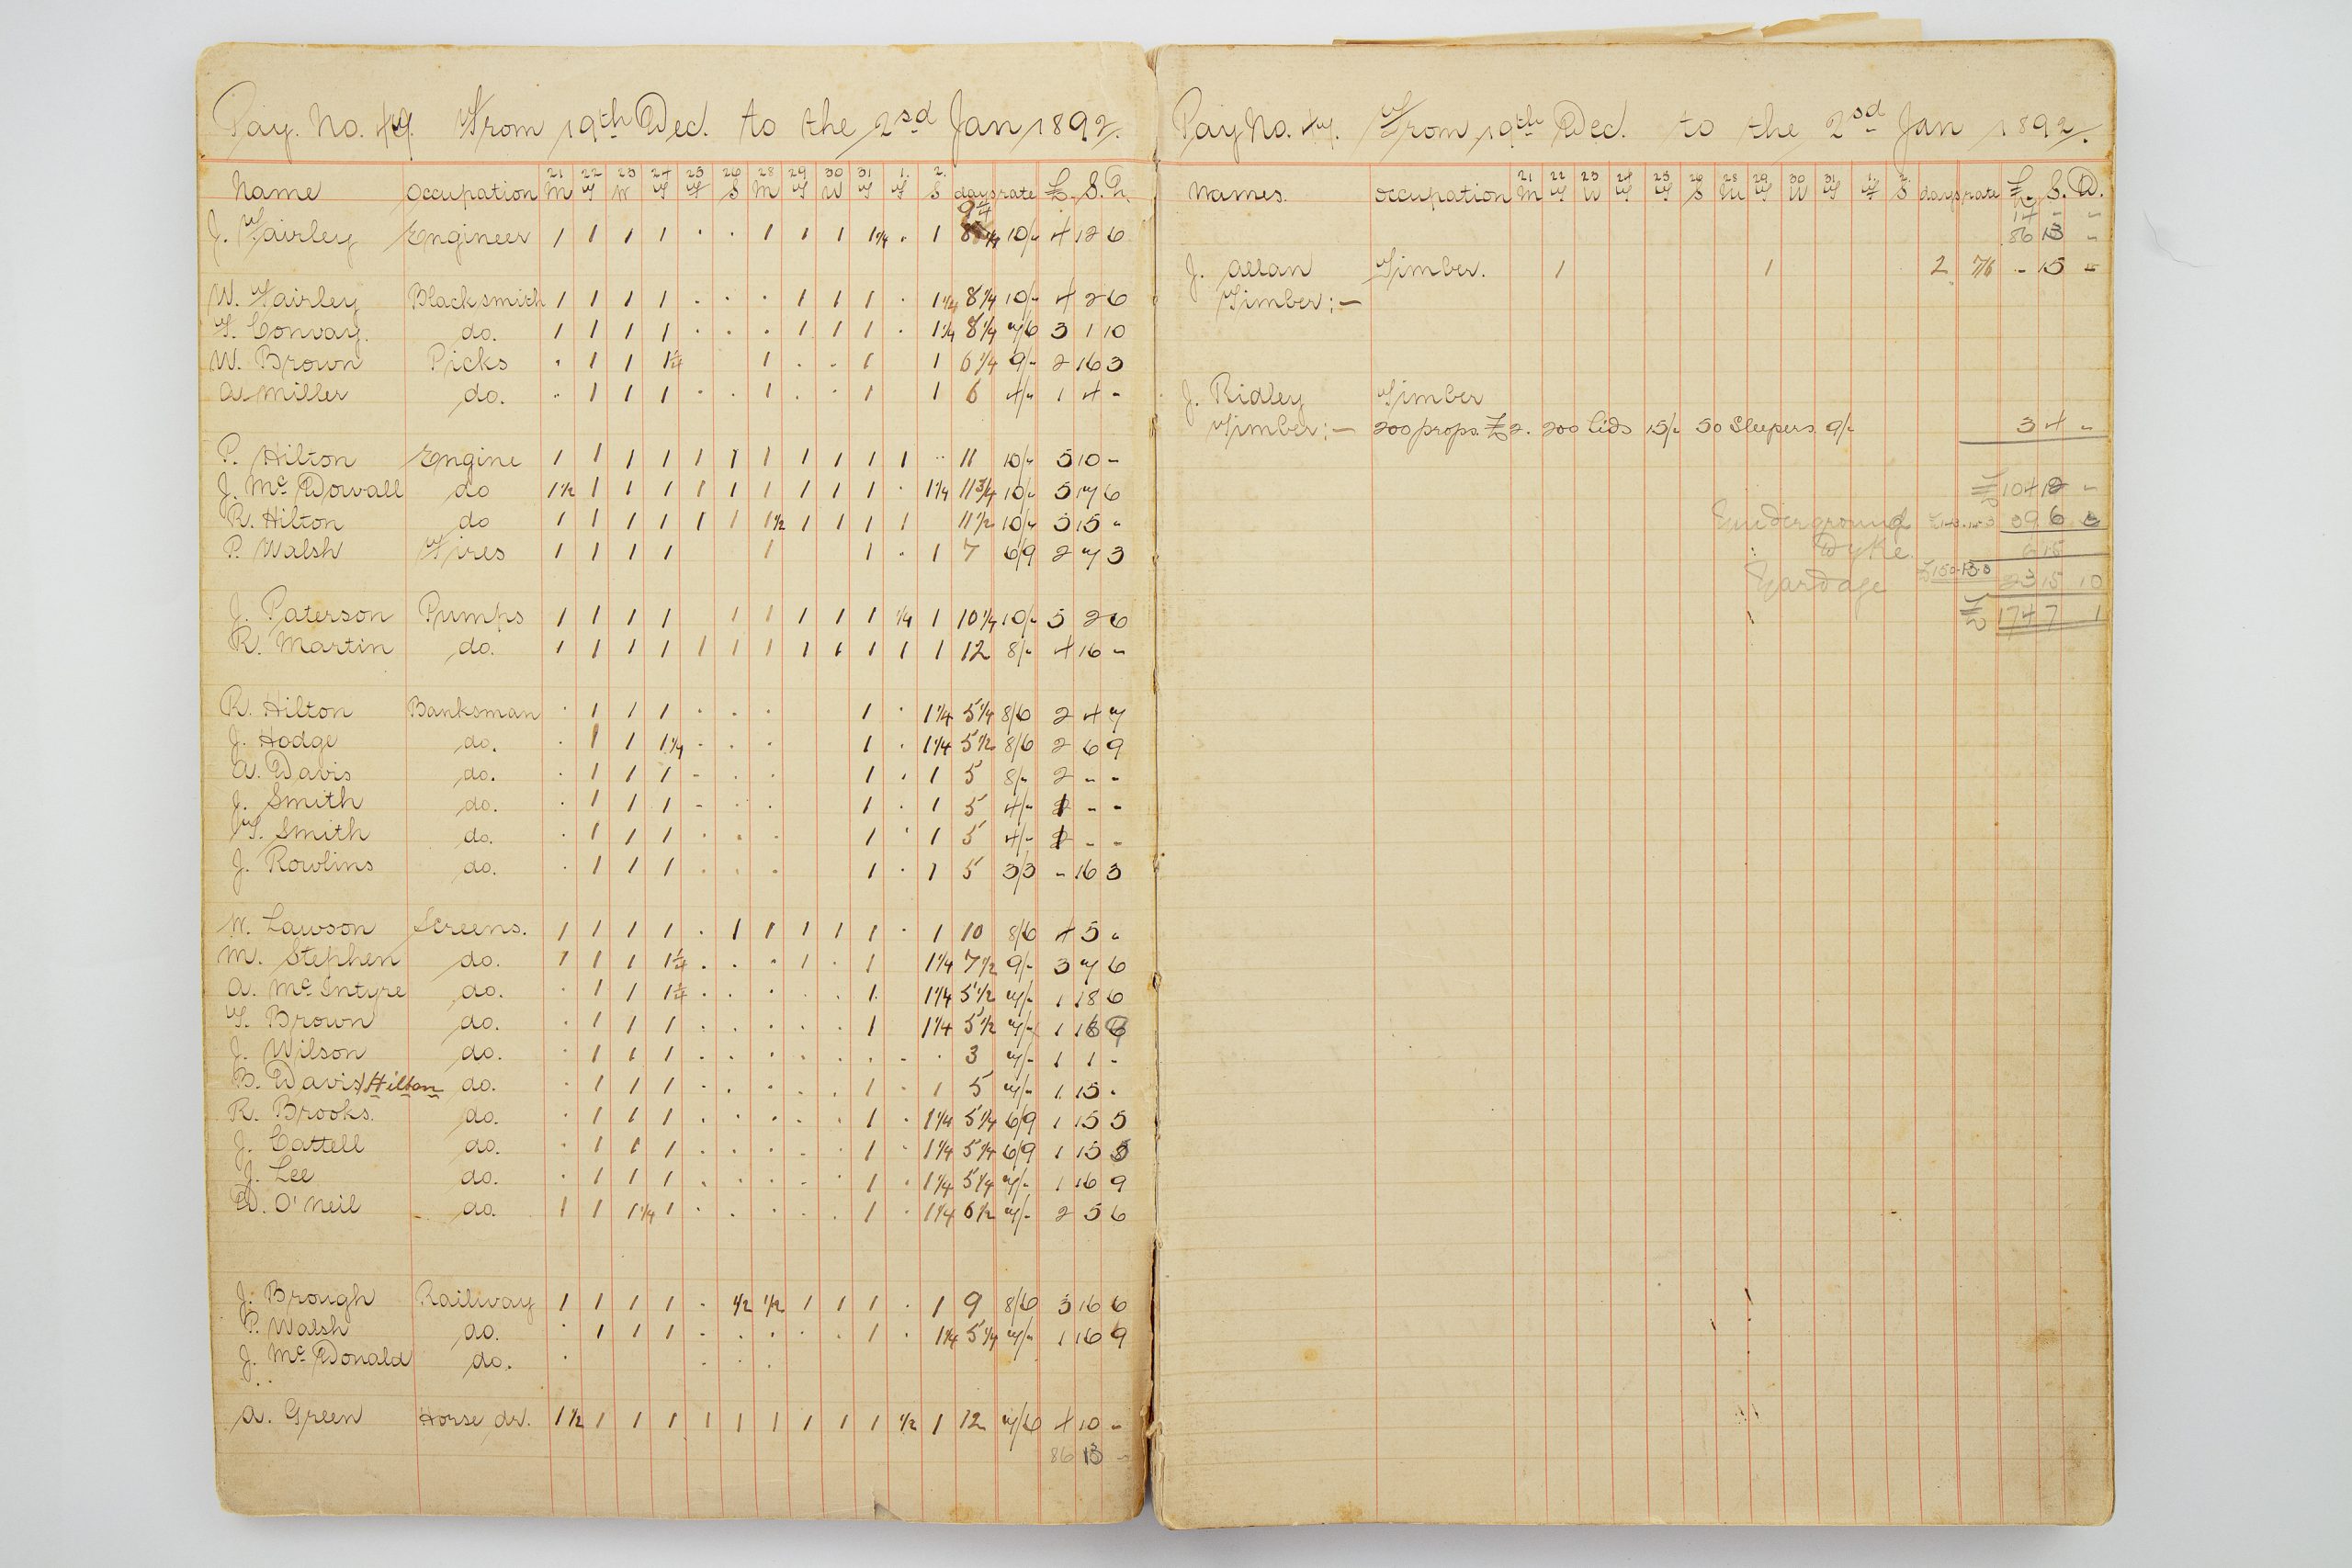 Pay. No. 49. From 19th Dec. to the 2sd Jan 1892.
Name Occupation 21 M 22 T 23 W 24 T 25 F 26 S 28 M 29 T 30 W 31 T 1. F 2. S days rate £. S. D.
9 1/4
J. Fairley Engineer 1 1 1 1 . . 1 1 1 1 1/4 . 1 10/- 4 12 6
W. Fairley Blacksmith 1 1 1 1 . . . 1 1 1 . 1 1/4 8 1/4 10/- 4 2 6
T. Convay. do. 1 1 1 1 . . . 1 1 1 . 1 1/4 8 1/4 7/6 3 1 10
W. Brown Picks . 1 1 1 1/4 1 . . 1 1 6 1/4 9/- 2 16 3
A. Miller do. . 1 1 1 . . 1 . . 1 1 6 4/- 1 4 -
P. Hilton Engine 1 1 1 1 1 1 1 1 1 1 1 . 11 10/- 5 10 -
J. Mc Dowall do 1 1/2 1 1 1 1 1 1 1 1 1 . 1 1/4 11 3/4 10/- 5 17 6
R. Hilton do 1 1 1 1 1 1 1 1/2 1 1 1 1 11 1/2 10/- 5 15 -
P. Walsh Fires 1 1 1 1 1 1 . 1 7 6/9 2 7 3
J. Paterson Pumps 1 1 1 1 1 1 1 1 1 1/4 1 10 1/4 10/- 5 2 6
R. Martin do. 1 1 1 1 1 1 1 1 1 1 1 1 12 8/- 4 16 -
R. Hilton Banksman . 1 1 1 . . . 1 . 1 1/4 5 1/4 8/6 2 4 7
J. Hodge do. . 1 1 1 1/4 . . . 1 . 1 1/4 5 1/2 8/6 2 6 9
A. Davis do. . 1 1 1 - . . 1 . 1 5 8/- 2 - -
J. Smith do. . 1 1 1 - . . 1 . 1 5 4/- 1 - -
T. Smith do. . 1 1 1 . . . 1 . 1 5 4/- 1 - -
J. Rowlins do. . 1 1 1 . . . 1 . 1 5 3/3 - 16 3
W. Lawson Screens. 1 1 1 1 . 1 1 1 1 1 . 1 10 8/6 4 5 -
M. Stephen do. 1 1 1 1 1/4 . . . 1 . 1 1 1/4 7 1/2 9/- 3 7 6
A. Mc Intyre do. . 1 1 1 1/4 . . . . . 1 1 1/4 5 1/2 7/- 1 18 6
T. Brown do. . 1 1 1 . . . . . 1 1 1/4 5 1/2 7/- 1
J. Wilson do. . 1 1 1 . . . . . . . . 3 7/- 1 1 -
B. Davis/Hilton do. . 1 1 1 . . . . . 1 . 1 5 7/- 1 15 -
R. Brooks. do. . 1 1 1 . . . . . 1 . 1 1/4 5 1/4 6/9 1 15 5
J. Cattell do. . 1 1 1 . . . . . 1 . 1 1/4 5 1/4 6/9 1 15 5
J. Lee do. . 1 1 1 . . . . . 1 . 1 1/4 5 1/4 7/- 1 16 9
D. O'Neil do. 1 1 1 1/4 1 . . . . . 1 . 1 1/4 6 1/2 7/- 2 5 6
J. Brough Railway 1 1 1 1 . 1/2 1/2 1 1 1 . 1 9 8/6 3 16 6
P. Walsh do. . 1 1 1 . . . . . 1 . 1 1/4 5 1/4 7/- 1 16 9
J. Mc Donald do. . . . .
A. Green Horse dr. 1 1/2 1 1 1 1 1 1 1 1 1 1/2 1 12 7/6 4 10 -
86 13 -
Pay No. 47. From 19th Dec. to the 2sd Jan 1892.
Names. Occupation 21 M 22 T 23 W 24 T 25 F 26 S 28 M 29 T 30 W 31 T 1 F 2. S days rate £. S. D.
14 - -
86 13 -
J. Allan Timber. 1 1 2 7/6 - 15 -
Timber:-
J. Ridley Timber
Timber:- 200 props. £2. 200 lids 15/- 50 Sleepers 9/- 3 4 -
£104 12 -
Underground 39 6 3
" Dyke. 6 18
Yardage £150.13.3 23 15 10
£ 174 7 1